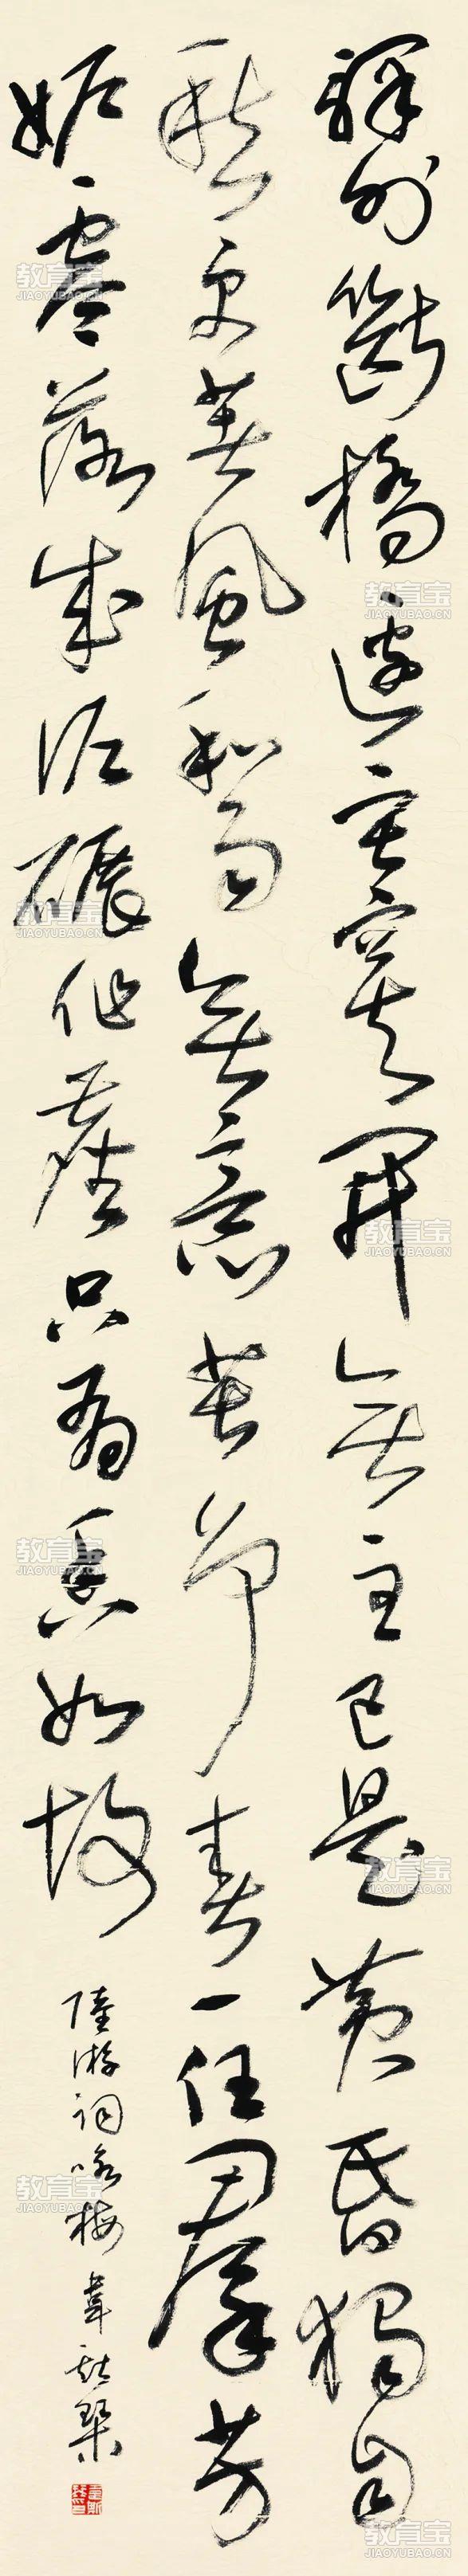 驛外斷橋邊寂寞開無主已是黃昏獨自
愁更著風和雨無意苦爭春一任羣芳
妬零落成泥碾作塵只有香如故
陸游詞咏梅 韋斯琴
教育宝
JIAOYUBAO.CN